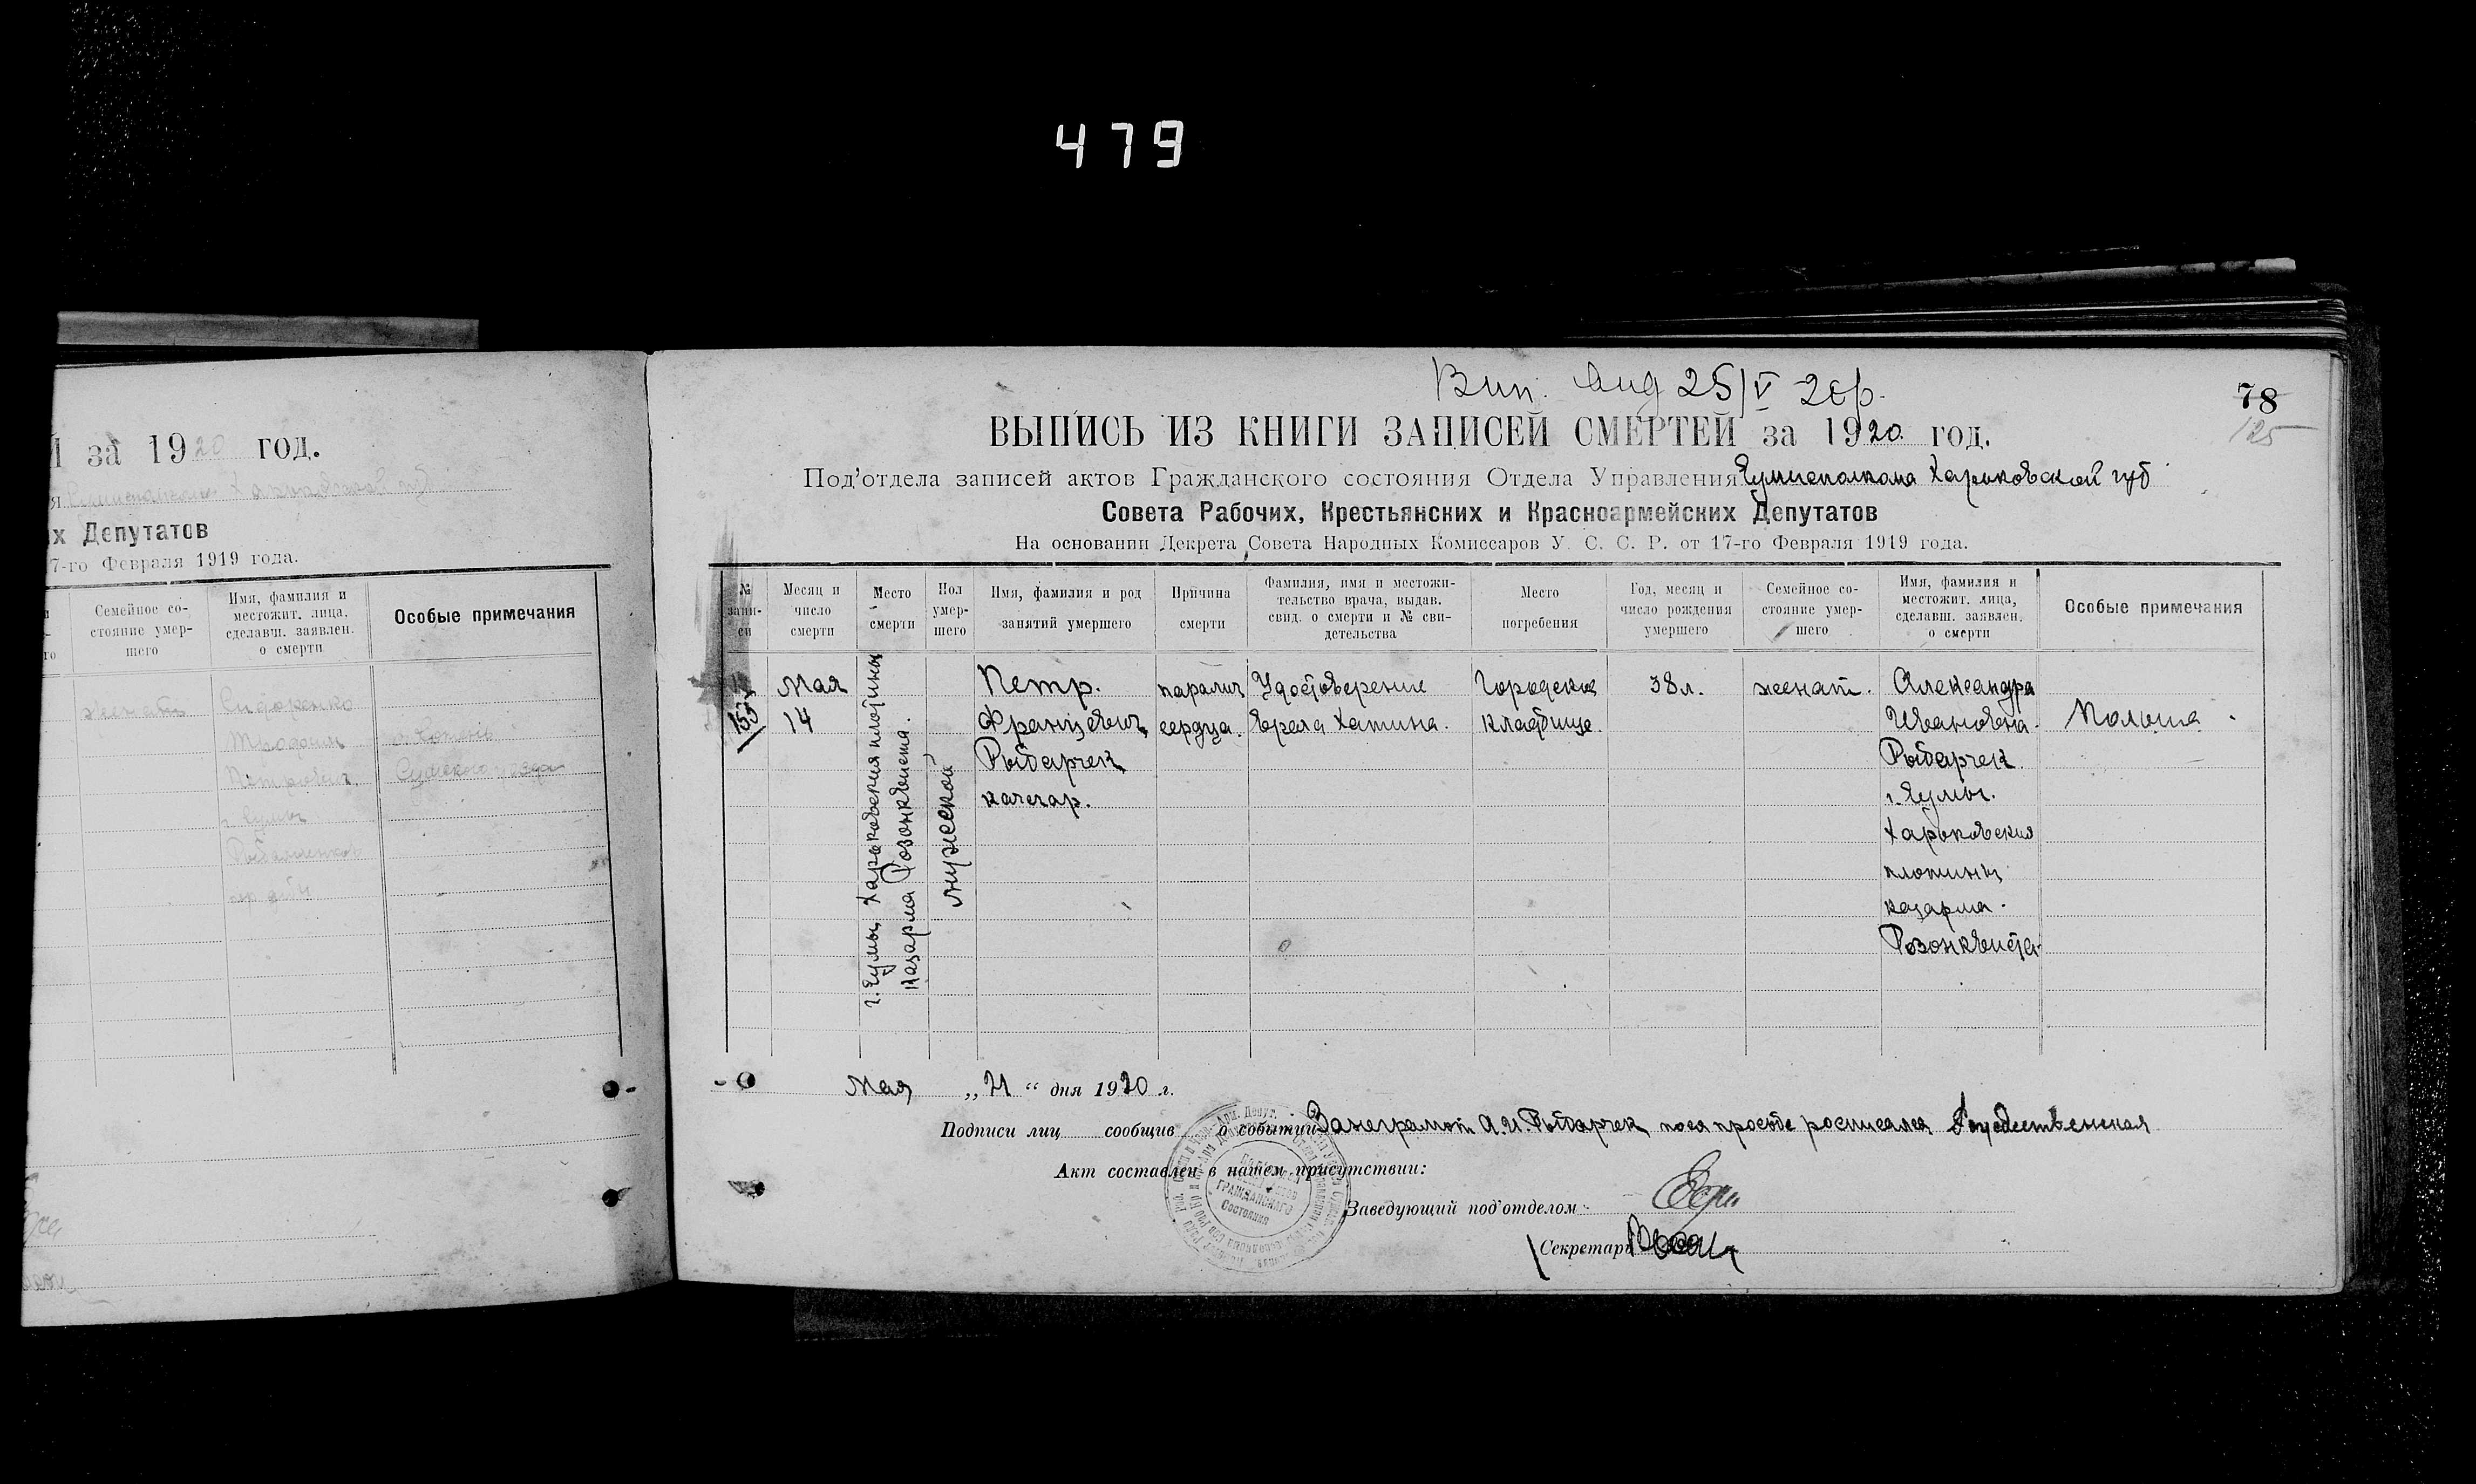 479
И за 1920 год.
я
х Депутатов
7-го Февраля 1919 года.
Семейное со-
стояние умер-
шего
Имя, фамилия и
местожит. лица,
сделавш. заявлен.
о смерти
Особые примечания
женат
Сидоренко
Трофим
Петрович
г. Сумы
Вип. 25/V 20р.
78
125
ВЫПИСЬ ИЗ КНИГИ ЗАПИСЕЙ СМЕРТЕЙ за 1920 год.
Под'отдела записей актов Гражданского состояния Отдела Управления Сумисполкома Харьковской губ
Совета Рабочих, Крестьянских и Красноармейских Депутатов
На основании Декрета Совета Народных Комиссаров У. С. С. Р. от 17-го Февраля 1919 года.
№
запи-
си
Месяц и
число
смерти
Место
смерти
Пол
умер-
шего
Имя, фамилия и род
занятий умершего
Причина
смерти
Фамилия, имя и местожи-
тельство врача, выдав.
свид. о смерти и № сви-
детельства
Место
погребения
Год, месяц и
число рождения
умершего
Семейное со-
стояние умер-
шего
Имя, фамилия и
местожит. лица,
сделавш. заявлен.
о смерти
Особые примечания
155
Мая
14
г. Сумы, Харьковския плотины
казарма Розонквиста.
мужеской
Петр.
Францевич
Рыбарчек
качегар.
паралич
сердца.
Удостоверение
врача Хатина.
Городское
кладбище.
38 л.
женат.
Александра
Ивановна
Рыбарчек
г. Сумы.
Харьковския
плотины
казарма
Розонквиста
Польша.
Мая „21“ дня 1920 г.
Подписи лиц сообщив о событии Занеграмот А. И. Рыбарчек поея просьбе росписался
Акт составлен в нашем присутствии:
ГРАЖДАНСКАГО
Состояния
Заведующий под'отделом
Секретарь